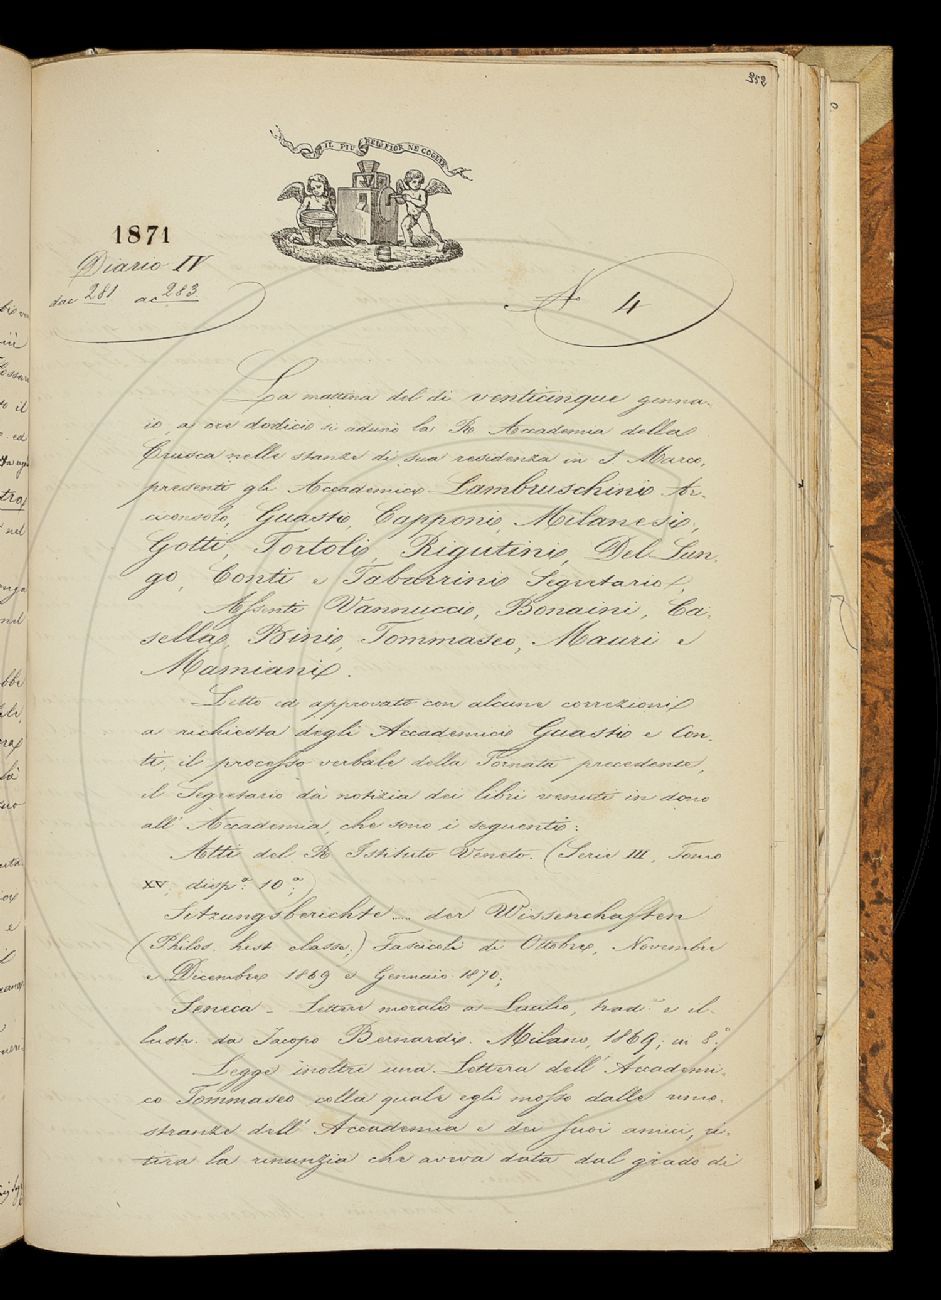 252
IL PIÙ BEL FIOR NE COGLIE
1871
Diario IV
da c 281 a c 283
N 4
La mattina del dì venticinque genna-
io a ore dodici si adunò la R Accademia della
Crusca nelle stanze di sua residenza in S. Marco,
presenti gli Accademici Lambruschini Ar-
ciconsolo, Guasti, Capponi, Milanesi,
Gotti, Tortoli, Rigutini, Del Lun-
go, Conti e Tabarrini Segretario.
Assenti Vannucci, Bonaini, Ca-
sella, Bini, Tommaseo, Mauri e
Mamiani.
Letto ed approvato con alcune correzioni
a richiesta degli Accademici Guasti e Con-
ti, il processo verbale della Tornata precedente,
il Segretario dà notizia dei libri venuti in dono
all' Accademia, che sono i seguenti:
Atti del R Istituto Veneto. (Serie III, Tomo
XV, disp.ª 10ª;)
Sitzungsberichte ... der Wissenchaften
(Philos. hist. classe;) Fascicoli di Ottobre, Novembre
e Dicembre 1869 e Gennaio 1870;
Seneca - Lettere morali a Lucilio, trad.e e il-
lustr. da Jacopo Bernardi. Milano, 1869; in 8.°;
Legge inoltre una Lettera dell' Accademi-
co Tommaseo colla quale egli mosso dalle rimo-
stranze dell' Accademia e dei suoi amici, ri-
tira la rinunzia che aveva data dal grado di